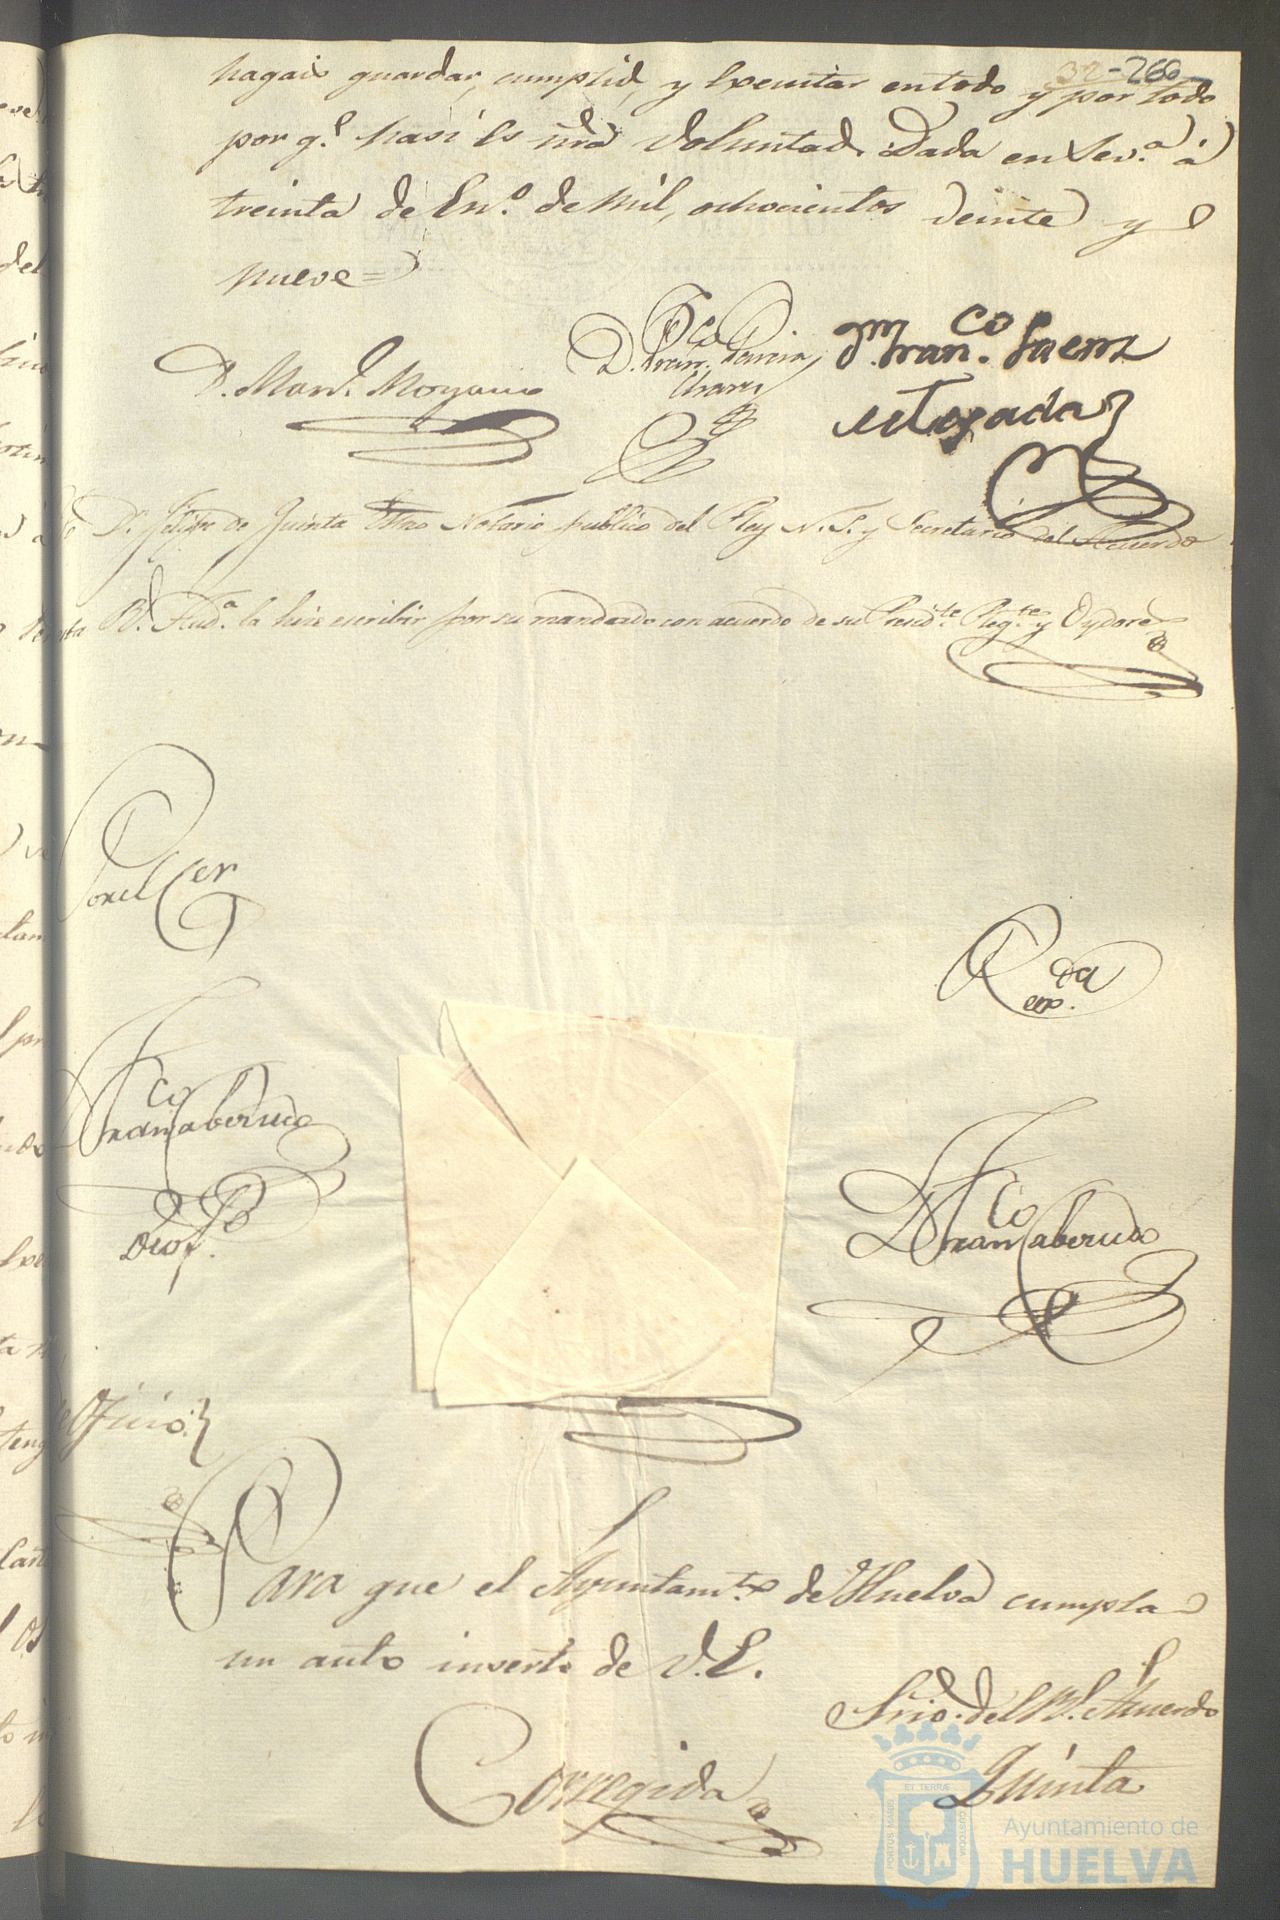 32-266
hagais guardar, cumplid, y Executar entodo y por todo
por q.e hasi Es nrã Voluntad. Dada en Sev.a á
treinta de En.o de mil, ochocientos veinte y
nueve =
D. Man.l Moyano
D. Fran.co Garcia
D.n Fran.co Saenz
de Texada
D.n Felipe de Quinta Essno Notario publico del Rey N. S. y Secretario del Acuerdo
R.l Aud.a la hice escribir por su mandado con acuerdo de su Presid.te Reg.te y Oydores
Cer
R.da
Fran.co Taberner
Fran.co Taberner
Oficio
Para que el Ayuntam.to de Huelva cumpla
un auto inserto de V.E.
Srio. del R.l Acuerdo
Corregida
Quinta
PORTUS MARIS ET TERRÆ CUSTODIA
Ayuntamiento de
HUELVA